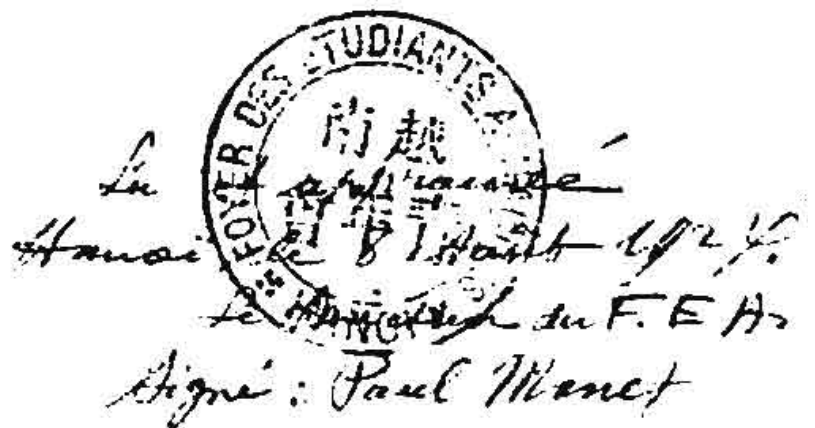 FOYER DES ETUDIANTS A
Lu et approuvé
Hanoi, le 8 Août
Le Directeur du F. E A.
Signé : Paul Monet